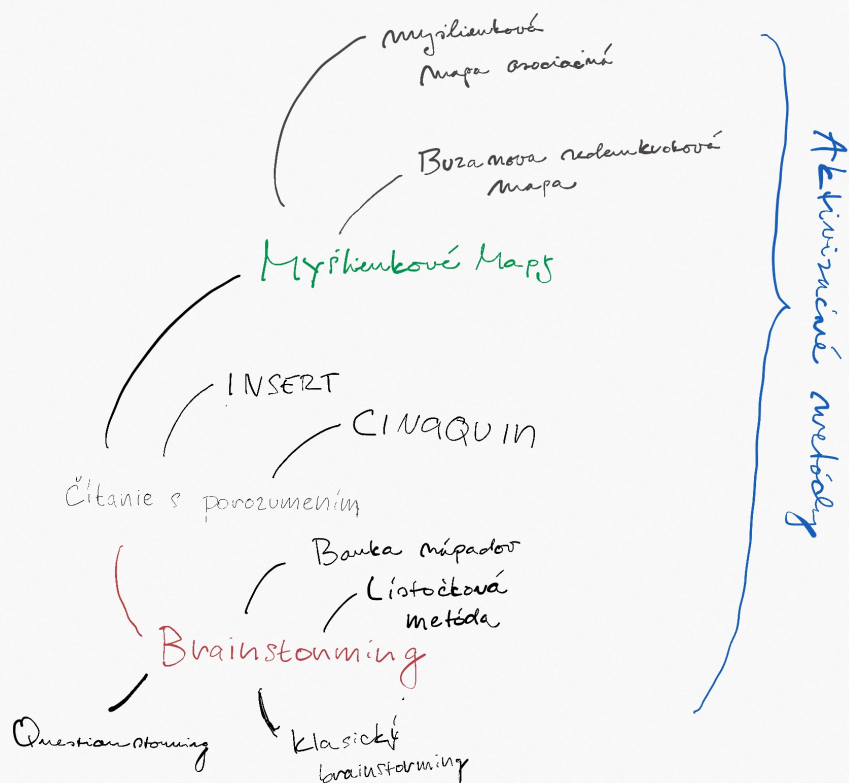 myšlienková
mapa asociačná
Buzanova
mapa
Myšlienkové Mapy
INSERT
CINAQUIN
Čítanie s porozumením
Banka nápadov
Lístočková
metóda
Brainstorming
Questionstorming
klasický
brainstorming
Aktivizačné metódy